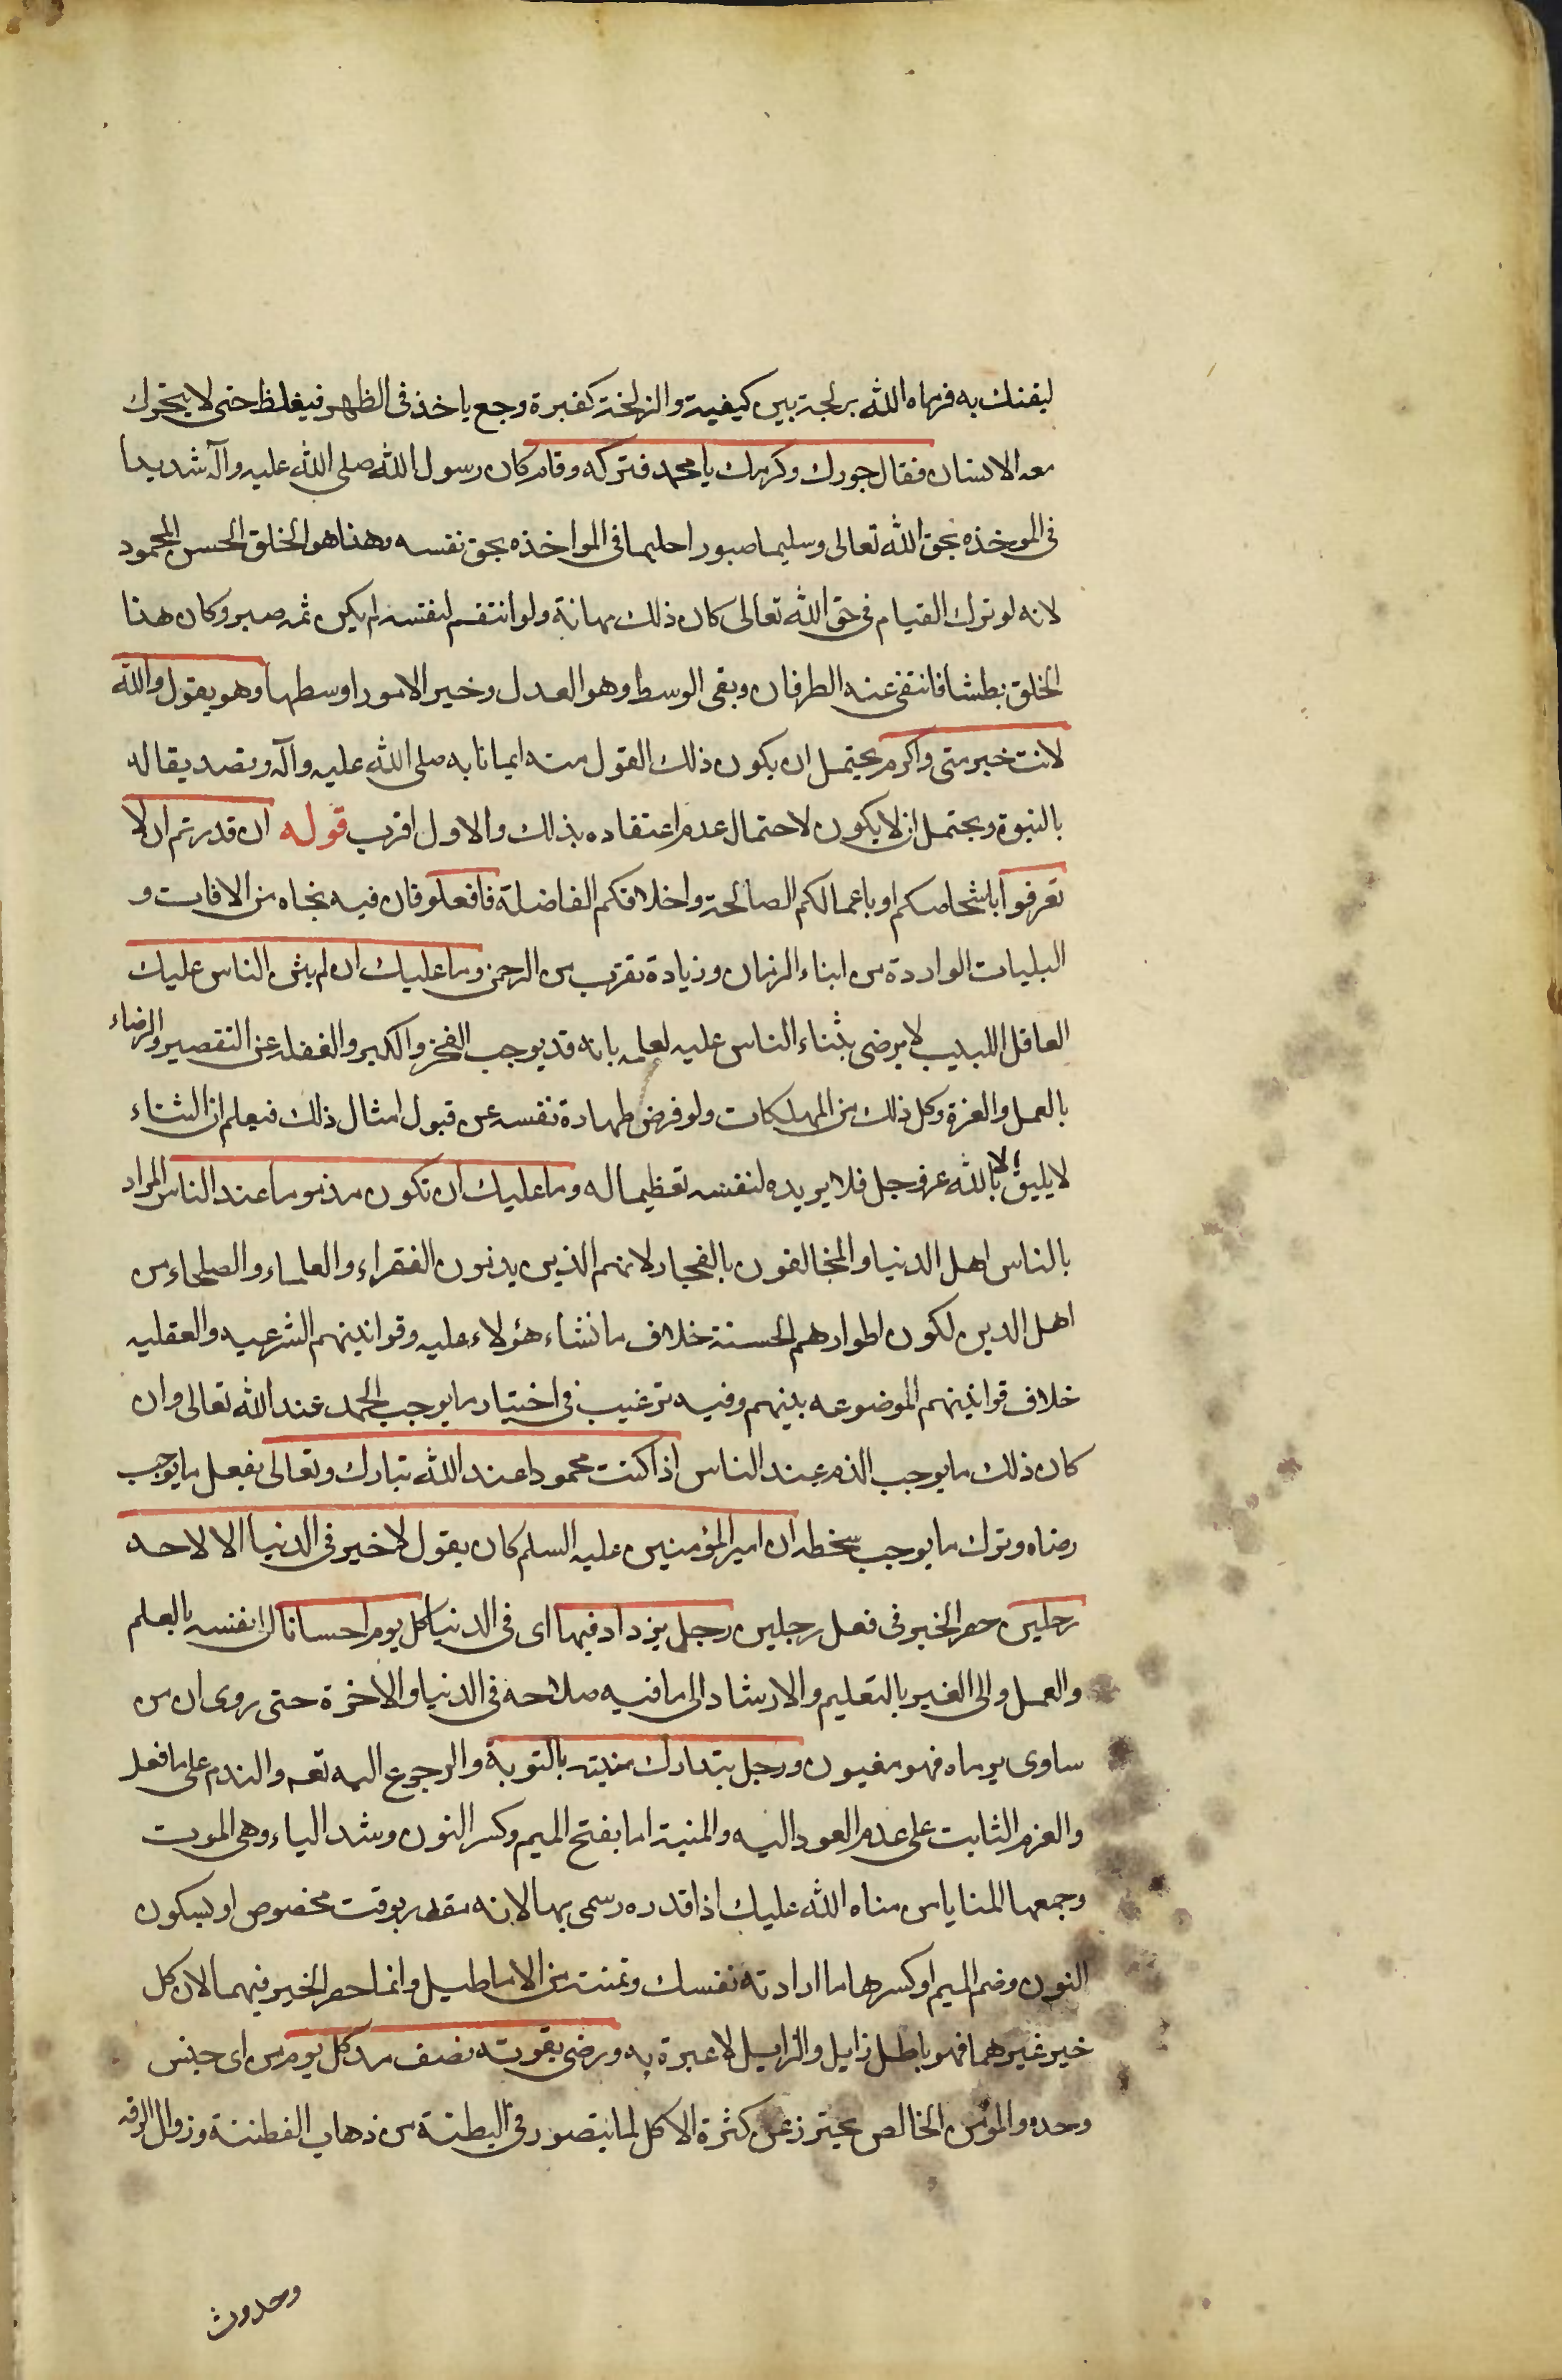 ليفتك به فرماه الله بزلجة بين كيفية والزلخة كقبرة وجع ياخذ فى الظهر فيغلظ حتى لا يتحرك
معه الانسان فقال جودك وكرمك يا محمد فتركه وقام كان رسول الله صلى الله عليه وآله شديدا
فى الموخذه بحق الله تعالى وسليما صبورا حليما فى المواخذه بحق نفسه وهذا هو الخلق الحسن المحمود
لانه لو ترك القيام فى حق الله تعالى كان ذلك مهانة ولو انتقم لنفسه لم يكن ثمه صبر وكان هذا
الخلق بطشا فانتفى عنه الطرفان وبقى الوسط وهو العدل وخير الامور اوسطها وهو يقول والله
لانت خير منى واكرم يحتمل ان يكون ذلك القول منه ايمانا به صلى الله عليه وآله وتصديقا له
بالنبوة ويحتمل ان لا يكون لاحتمال عدم اعتقاده بذلك والاول اقرب قوله ان قدرتم ان لا
تعرفوا باشخاصكم او باعمالكم الصالحة واخلاقكم الفاضلة فافعلوا فان فيه نجاه من الافات و
البليات الواردة من ابناء الزمان وزيادة تقرب من الرحمن وما عليك ان لم يثن الناس عليك
العاقل اللبيب لا يرضى بثناء الناس عليه لعلمه بانه قد يوجب الفخر والكبر والغفله عن التقصير والرضاء
بالعمل والعزة وكل ذلك من المهلكات ولو فرض طهارة نفسه عن قبول امثال ذلك فيعلم ان الثناء
لا يليق الا بالله عز وجل فلا يريده لنفسه تعظيما له وما عليك ان تكون مذموما عند الناس المراد
بالناس اهل الدنيا والمخالفون بالفجار لانهم الذين يذمون الفقراء والعلماء والصلحاء من
اهل الدين لكون اطوارهم الحسنة خلاف ما نشاء هؤلاء عليه وقوانينهم الشرعيه والعقليه
خلاف قوانينهم الموضوعه بينهم وفيه ترغيب فى اختيار ما يوجب الحمد عند الله تعالى وان
كان ذلك ما يوجب الذم عند الناس اذا كنت محمودا عند الله تبارك وتعالى بفعل ما يوجب
رضاه وترك ما يوجب سخطه ان امير المؤمنين عليه السلم كان يقول لا خير فى الدنيا الا لاحد
رجلين حصر الخير فى فعل رجلين رجل يزداد فيها اى فى الدنيا كل يوم احسانا الى نفسه بالعلم
والعمل والى الغير بالتعليم والارشاد الى ما فيه صلاحه فى الدنيا والاخرة حتى روى ان من
ساوى يوماه فهو مغبون ورجل يتدارك منيته بالتوبة والرجوع اليه تعم والندم على ما فعل
والعزم الثابت على عدم العود اليه والمنية اما بفتح الميم وكسر النون وشد الياء وهى الموت
وجمعها المنايا من مناه الله عليك اذا قدره وسمى بها لانه مقدر بوقت مخصوص او بسكون
النون وضم الميم او كسرها ما ارادته نفسك وتمنته من الاباطيل وانما حصر الخير فيهما لان كل
خير غيرهما فهو باطل زايل والزايل لا عبرة به ورضى بقوته نصف مد كل يوم من اى جنس
وحده والمؤمن الخالص يحترز عن كثرة الاكل لما يتصور فى البطنة من ذهاب الفطنة وزوال الرقه
وحدوث